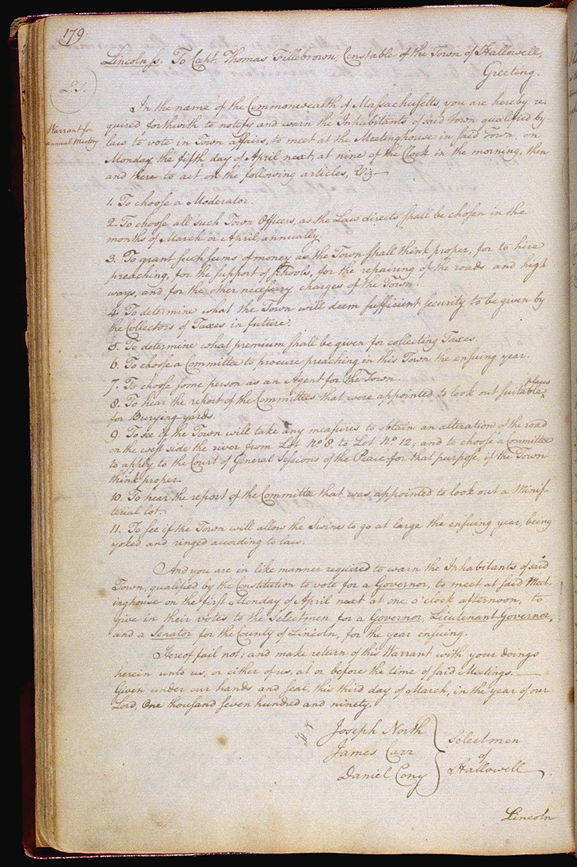 179
Lincoln ſs. To Capt. Thomas Fillebrown, Constable of the Town of Hallowell,
Greeting.
L.S.
Warrant for
annual Meeting
In the name of the Commonwealth of Massachusetts, you are hereby re-
quired forthwith to notify and warn the Inhabitants of said town qualified by
law to vote in Town affairs, to meet at the Meetinghouse in said Town, on
Monday the fifth day of April next, at nine of the Clock in the morning, then
and there to act on the following articles, Viz.
1. To choose a Moderator.
2. To choose all such Town Officers, as the Law directs shall be chosen in the
months of March or April, annually.
3. To grant such sums of money as the Town shall think proper, for to hire
preaching, for the support of schools, for the repairing of the roads and high
ways, and for the other necessary charges of the Town.
4. To determine what the Town will deem sufficient security to be given by
the Collectors of Taxes in future.
5. To determine what premium shall be given for collecting Taxes.
6. To choose a Committee to procure preaching in this Town the ensuing year.
7. To choose some person as an Agent for the Town.
8. To hear the report of the Committees that were appointed to look out suitable places
for Burying yards.
9. To see if the Town will take any measures to obtain an alteration of the road
on the west side the river from Lot No. 8 to Lot No. 12, and to choose a Committee
to apply to the Court of General Sessions of the Peace for that purpose, if the Town
think proper.
10. To hear the report of the Committe that was appointed to look out a Minis-
terial lot.
11. To see if the Town will allow the Swine to go at large the ensuing year, being
yoked and ringed according to law.
And you are in like manner required to warn the Inhabitants of said
Town, qualified by the Constitution to vote for a Governor, to meet at said Meet-
inghouse on the first Monday of April next at one o'clock afternoon, to
give in their votes to the Selectmen for a Governor, Lieutenant Governor,
and a Senator for the County of Lincoln, for the year ensuing.
Hereof fail not; and make return of this Warrant with your doings
herein unto us, or either of us, at or before the time of said Meetings.
Given under our hands and seal, this third day of March, in the year of our
Lord, One thousand seven hundred and ninety.
Joseph North
James Carr
Daniel Cony
Selectmen
of
Hallowell
Lincoln